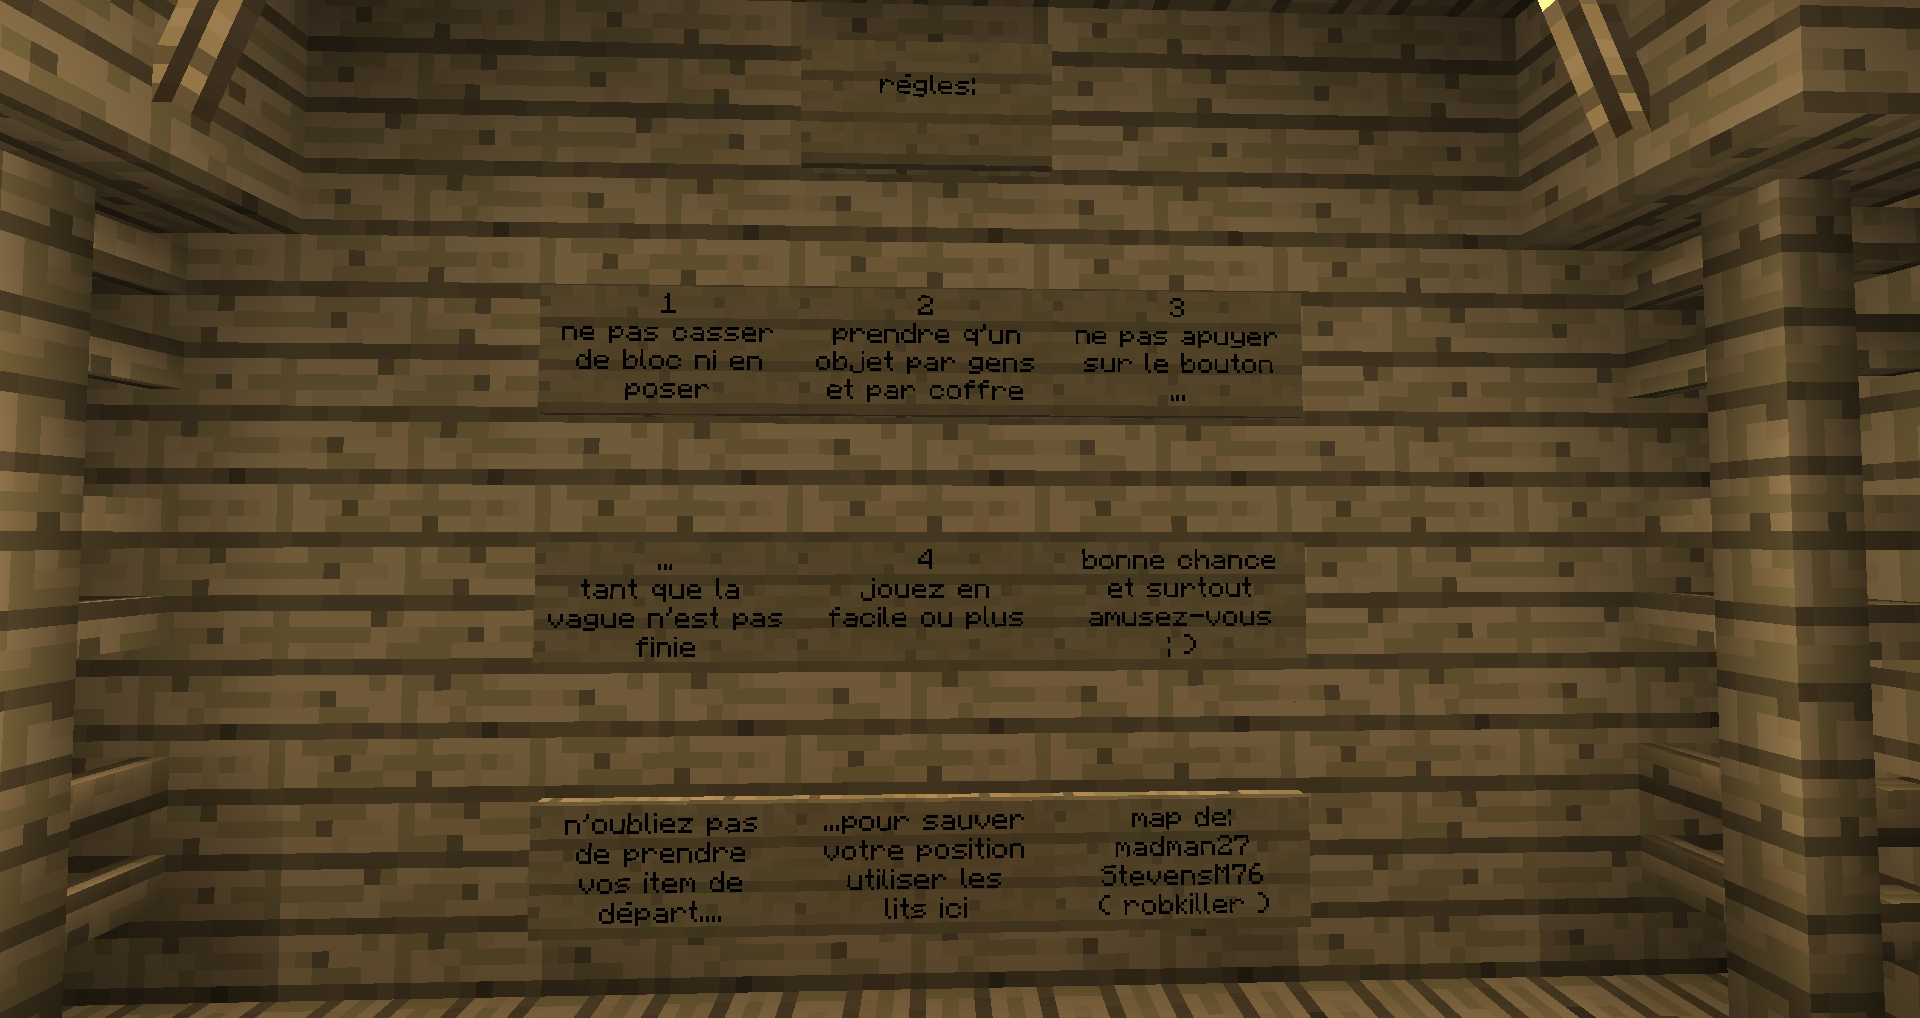 régles:
1
ne pas casser
de bloc ni en
poser
2
prendre q'un
objet par gens
et par coffre
3
ne pas apuyer
sur le bouton
...
...
tant que la
vague n'est pas
finie
4
jouez en
facile ou plus
bonne chance
et surtout
amusez-vous
:)
n'oubliez pas
de prendre
vos item de
départ....
...pour sauver
votre position
utiliser les
lits ici
map de:
madman27
StevensM76
( robkiller )